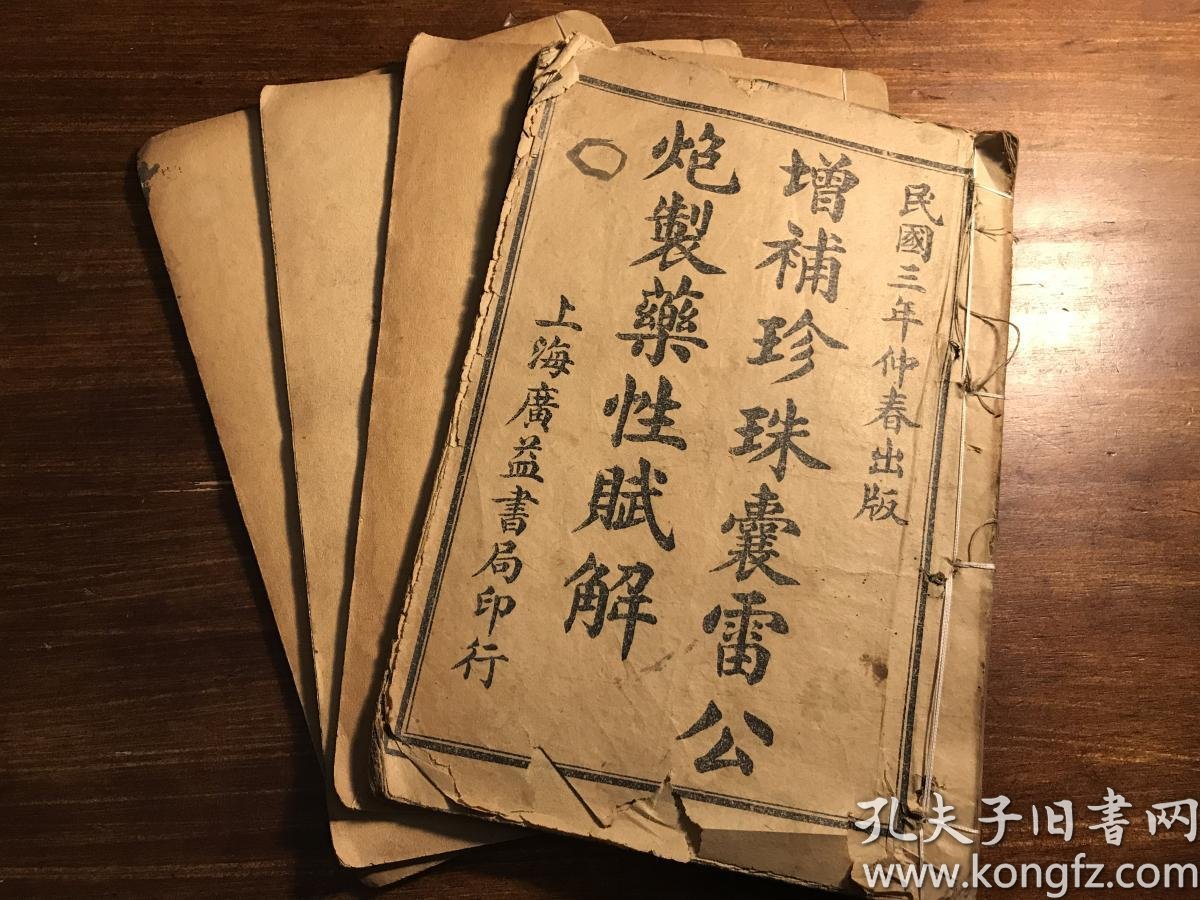 民國三年仲春出版
增補珍珠囊雷公
炮製藥性賦解
上海廣益書局印行
孔夫子旧書网
www.kongfz.com